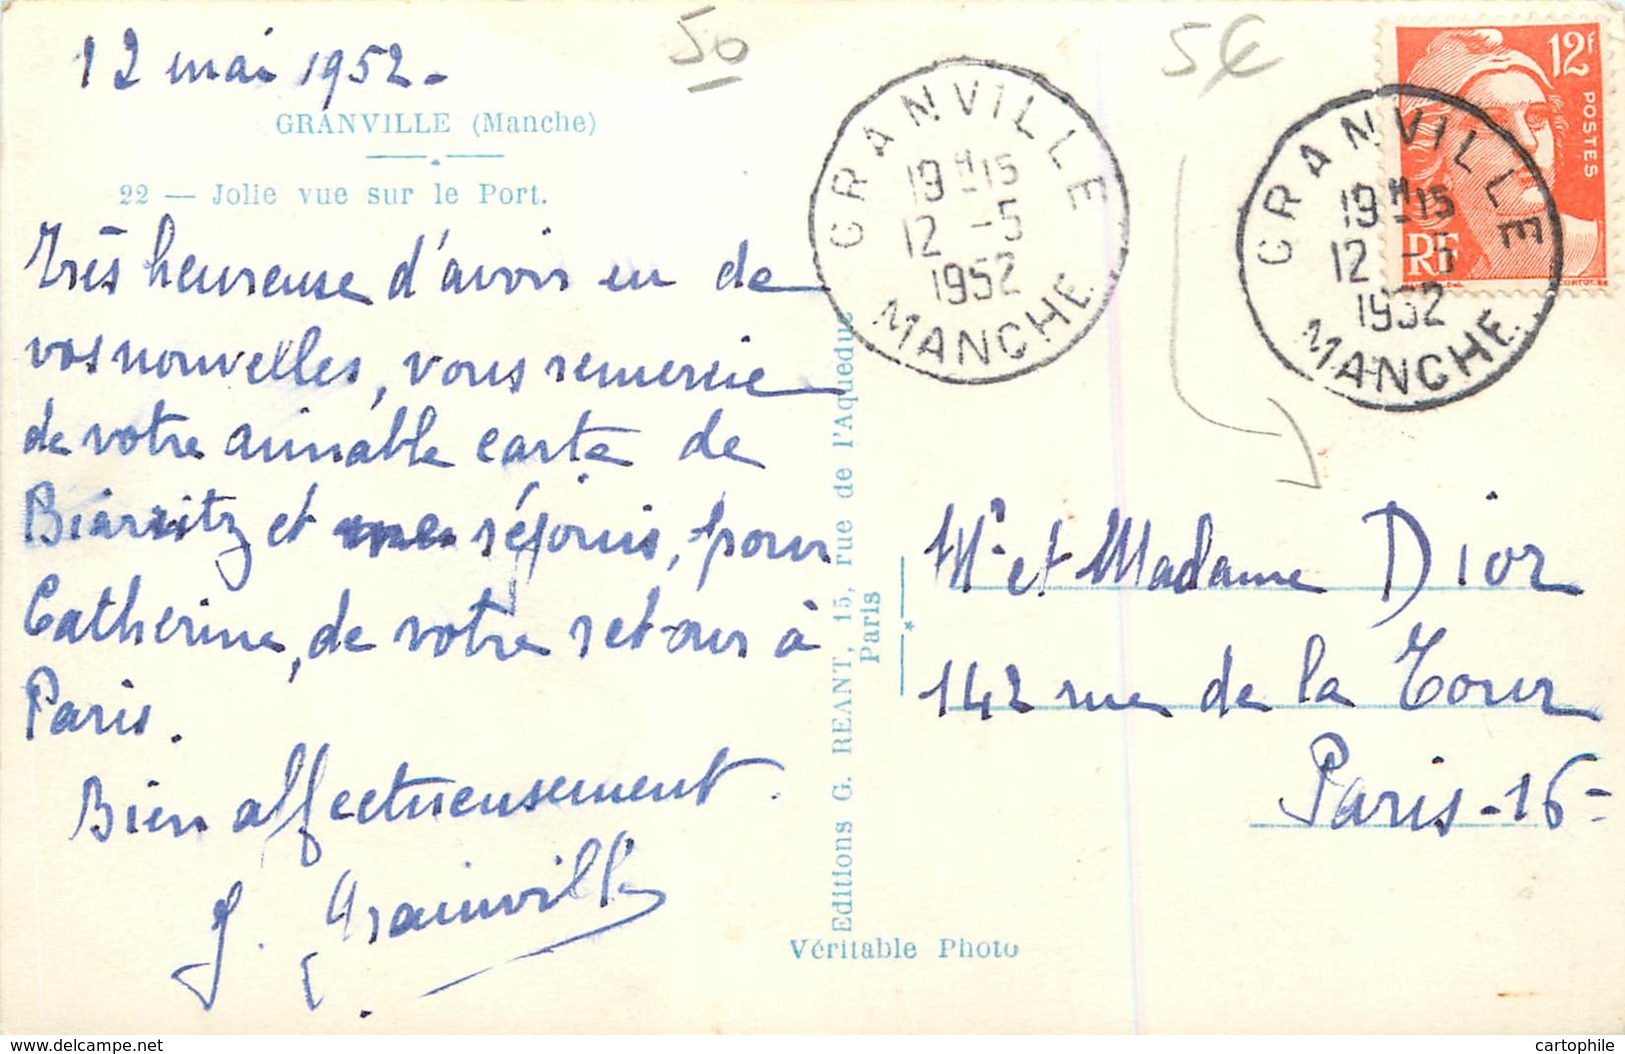 12 mai 1952.
GRANVILLE (Manche)
22 — Jolie vue sur le Port.
Très heureuse d'avoir eu de
vos nouvelles, vous remercie
de votre aimable carte de
Biarritz et me réjouis, pour
Catherine, de votre retour à
Paris.
Bien affectueusement.
Editions G. REANT, 15, rue de l'Aqueduc
Paris
Véritable Photo
50
5€
GRANVILLE
19H15
12 -5
1952
MANCHE
GRANVILLE
19H15
12 -5
1952
MANCHE
12F
POSTES
RF
Mr et Madame Dior
142 rue de la Tour
Paris-16-
delcampe.net
cartophile